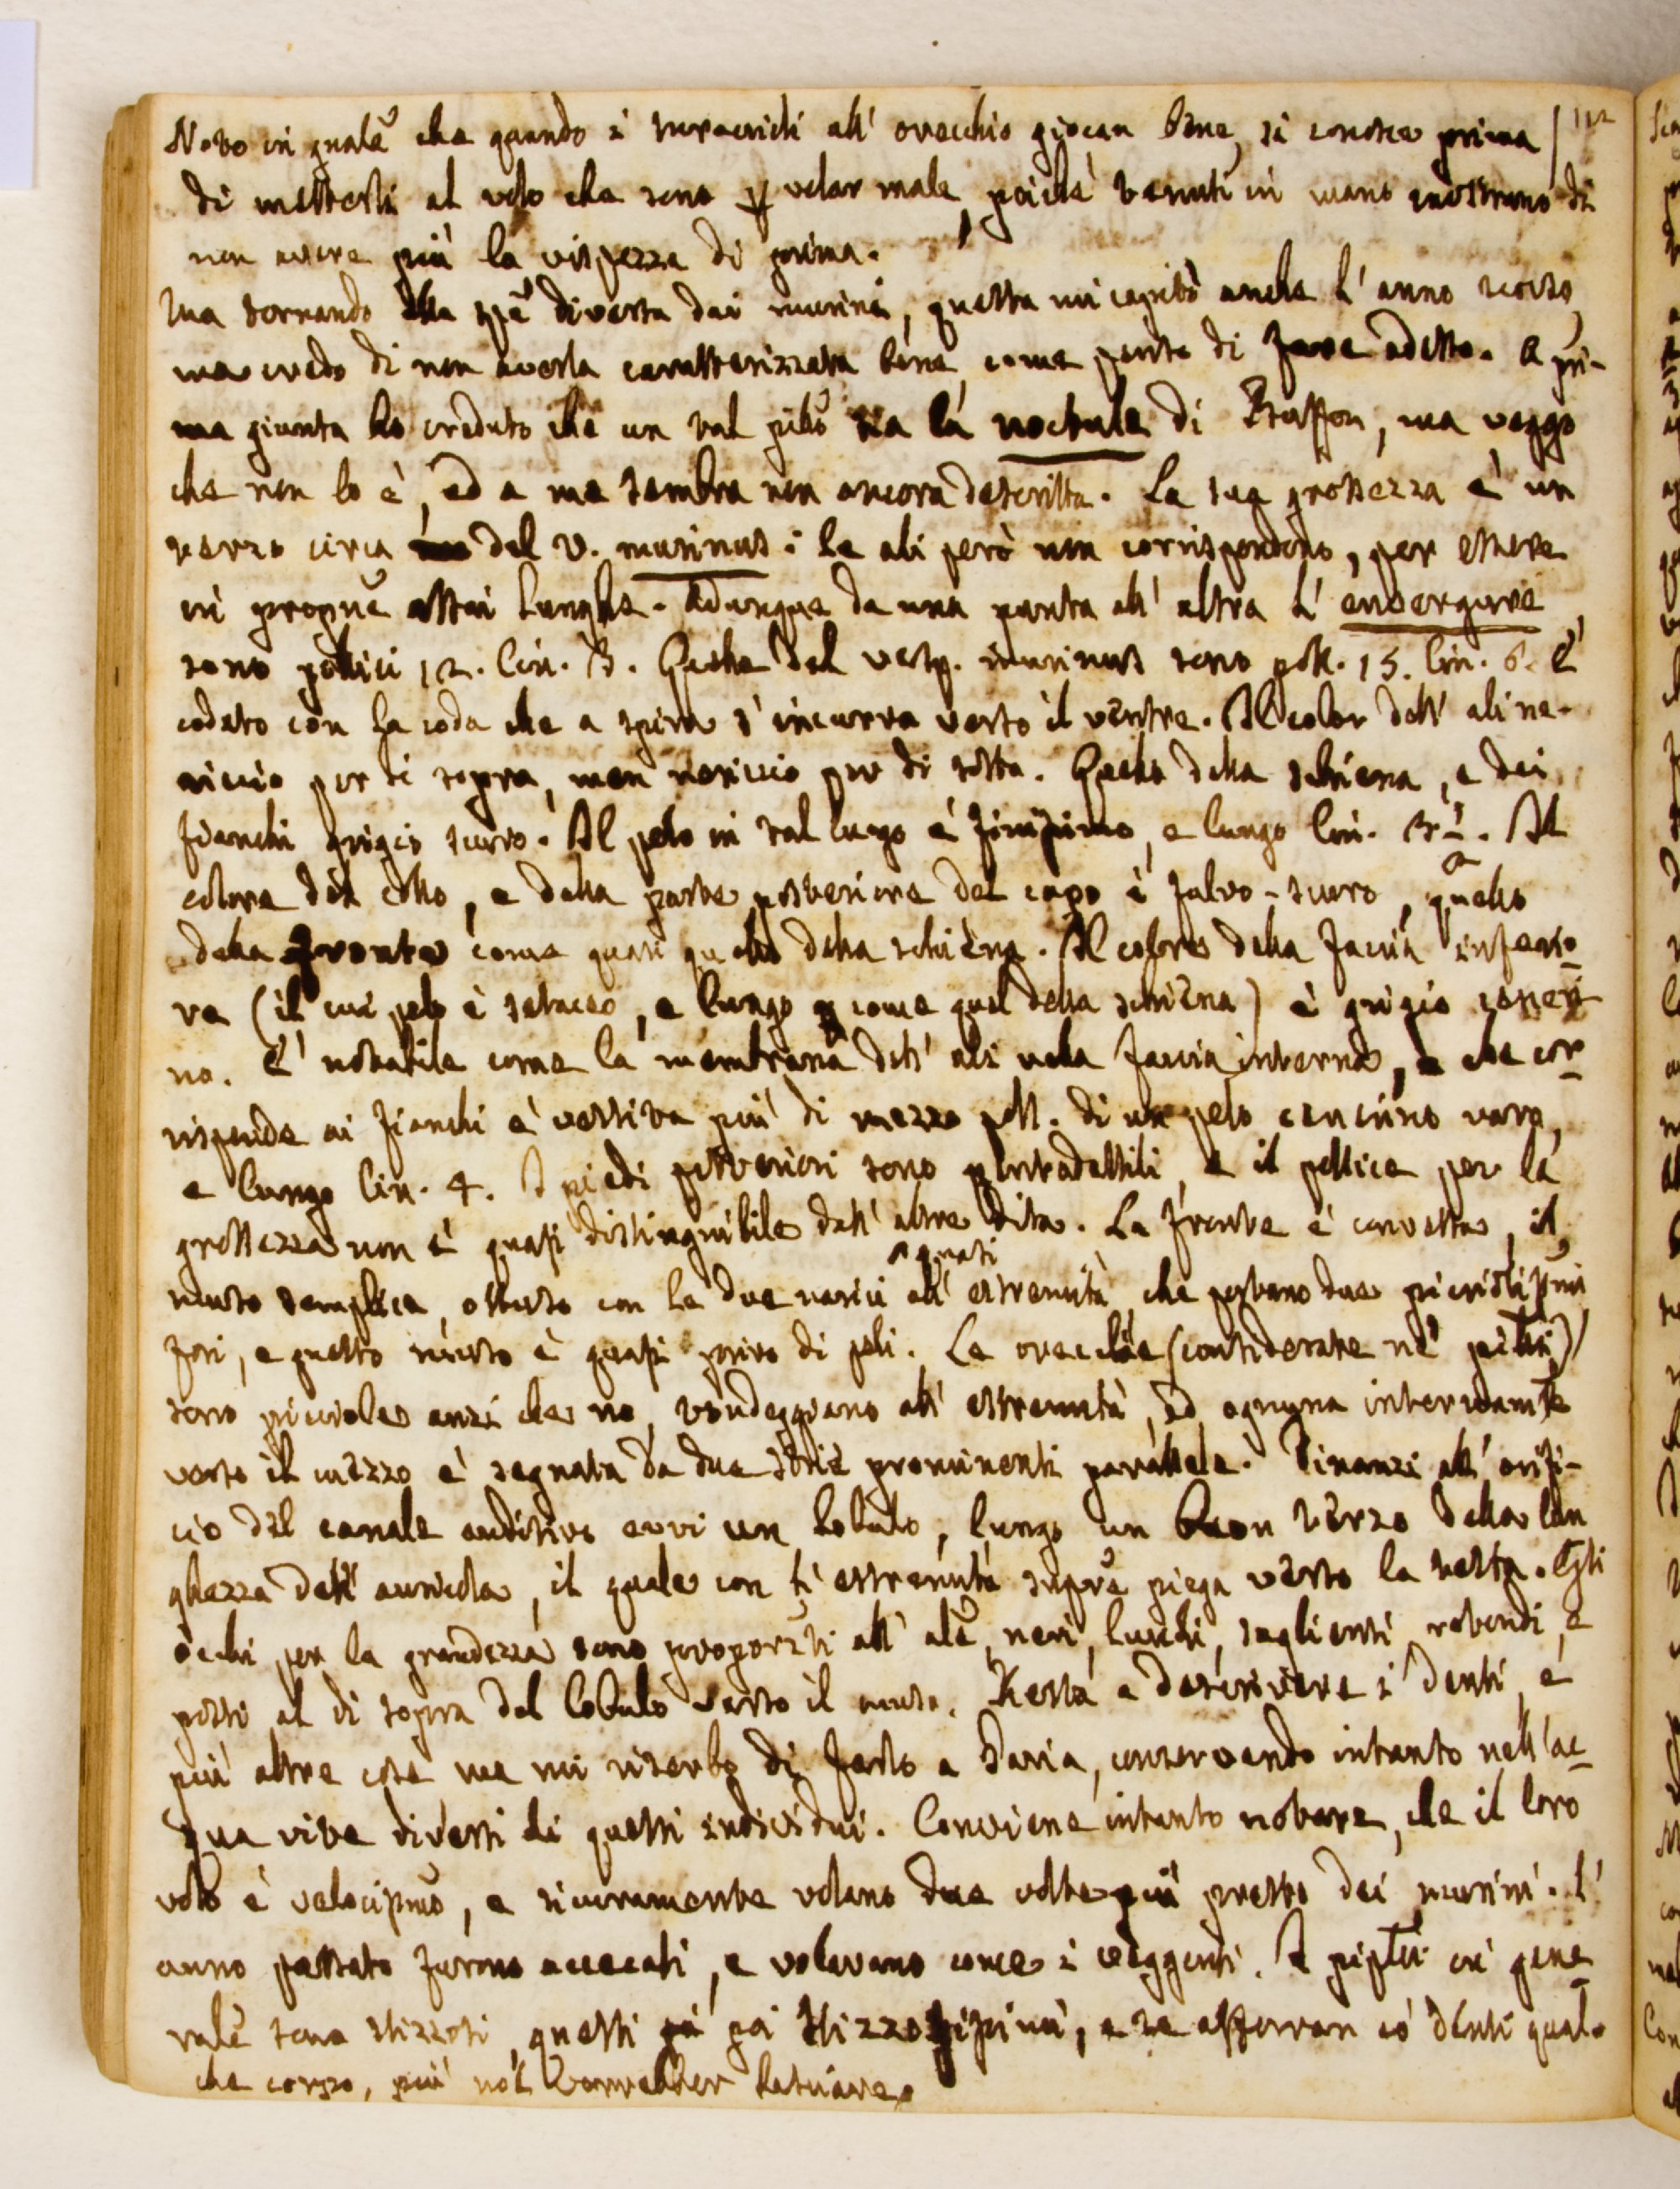 Noto in genale che quando i turaccioli all' orecchio giocan bene, si conosce prima 112
di metterli al volo che sono p volar male, poichè tenuti in mano mostrano di
non avere più la vispezza di prima.
Ma tornando alla spe diversa dai murini, questa mi capitò anche l' anno scorso,
ma credo di non averla caratterizzata bene, come penso di fare adesso. A pri-
ma giunta ho creduto che un tal pipilo sia la noctule di Buffon, ma veggo
che non lo è, ed a me sembra non ancora descritta. La sua grossezza è un
terzo circa del V. murinus: le ali però non corrispondono, per essere
in propne assai lunghe. Adunque da una punta all' altra l' envergure
sono pollici 12. lin. 3. Quelle del vesp. murinus sono poll. 15. lin. 6. È
codato con la coda che a spira s' incurva verso il ventre. Il color dell' ali ne-
riccio per di sopra, men nericcio per di sotto. Quello della schiena, e dei
fianchi grigio scuro. Il pelo in tal luogo è finissimo, e lungo lin. 3 1/2. Il
colore del collo, e della parte posteriore del capo è fulvo-scuro, quello
della fronte come quasi quello della schiena. Il colore della faccia inferio-
re (il cui pelo è setaceo, e lungo come quel della schiena) è grigio ceneri-
no. È notabile come la membrana dell' ali nella faccia interna, e che cor-
risponde ai fianchi è vestita più di mezzo poll. di un pelo cenerino raro,
e lungo lin. 4. I piedi posteriori sono pentadattili, e il pollice per la
grossezza non è quasi distinguibile dall' altre dita. La fronte è convessa, il
muso semplice, ottuso con le due narici aguati all' estremità che portano due picciolissimi
fori, e questo muso è quasi privo di peli. Le orecchie (considerate ne' pipili)
sono picciole anzi che no, tondeggiano all' estremità, ed ognuna internamte
verso il mezzo è segnata da due strie prominenti paralelle. Dinanzi all' orifi-
cio del canale auditivo evvi un lobulo, lungo un buon terzo della lun
ghezza dell' auricola, il quale con l' estremità supre piega verso la testa. Gli
occhi per la grandezza sono proporzti all' ale, neri, lucidi, saglienti, rotondi, e
posti al di sopra del lobulo verso il muso. Resta a descrivere i denti, e
più altre cose ma mi riserbo di farlo a Pavia, conservando intanto nell' ac-
qua vite diversi di questi individui. Conviene intanto notare, che il loro
volo è velocissmo, e sicuramente volano due volte più presto dei murini. L'
anno passato furono accecati, e volavano come i veggenti. I pipili in gene
rale sono stizzosi, questi poi stizzosissimi, e se afferran co' denti qual-
che corpo, più nol vorrebber lasciare.